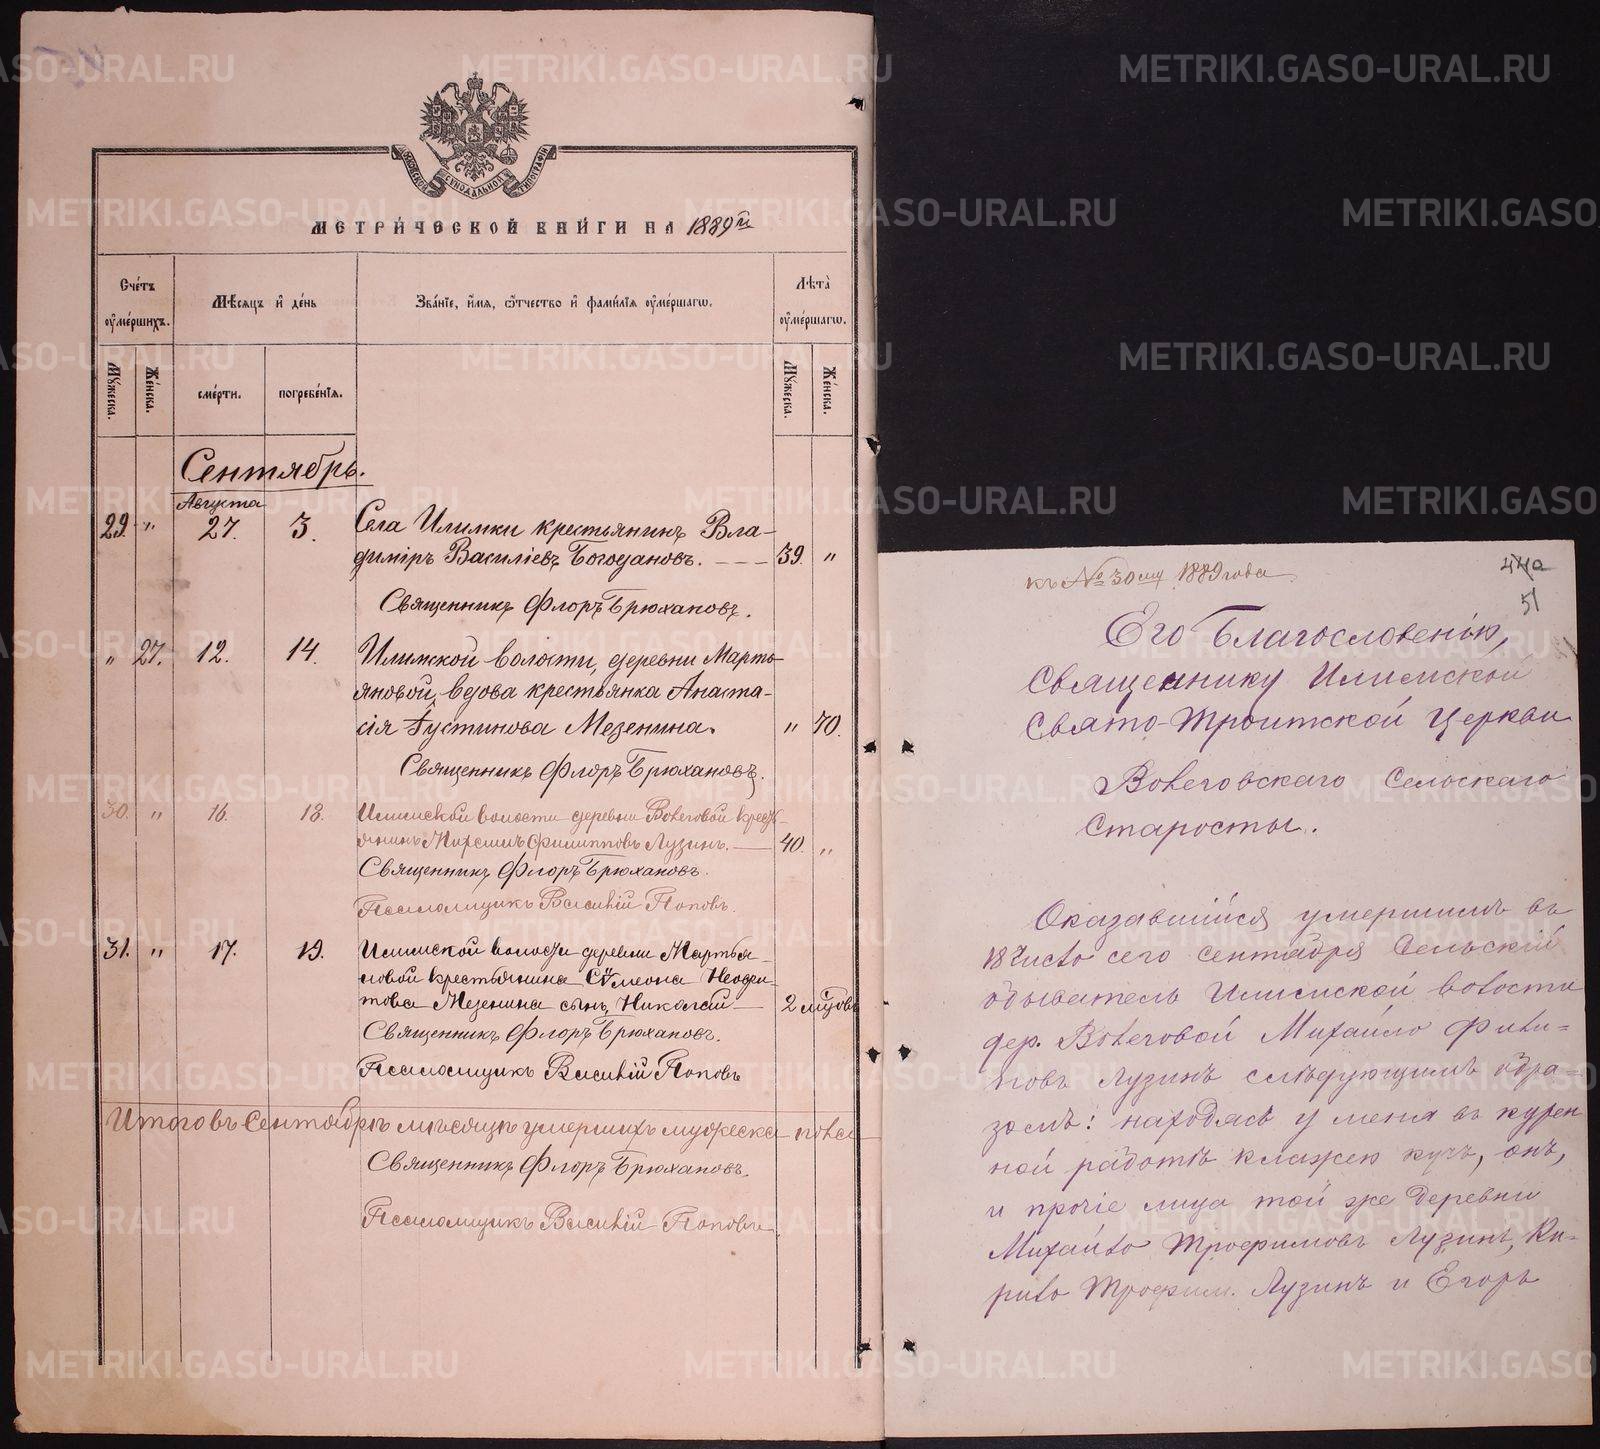 МОСКОВСКОЙ СѴНОДАЛЬНОЙ ТИПОГРАФІИ
МЕТРИЧЕСКОЙ КНИГИ НА 1889й
Счетъ оумершихъ.
Мѣсяцъ и день
Званіе, имя, отчество и фамиліа оумершагѡ.
Лѣта оумершагѡ.
Мꙋжеска.
Женска.
смерти.
погребеніа.
Мꙋжеска.
Женска.
Сентябрь.
Августа
29. " 27. 3. Села Илимки крестьянинъ Вла-
димiръ Василiевъ Богодановъ. — — — 39. "
Священникъ Флоръ Брюхановъ.
" 27. 12. 14. Илимской волости, деревни Марть-
яновой, вдова крестьянка Анаста-
сiя Густинова Мезенина. " 70.
Священникъ Флоръ Брюхановъ.
30. " 16. 18. Илимской волости деревни Волеговой крестья-
янинъ Михаилъ Филипповъ Лузинъ. — 40. "
Священникъ Флоръ Брюхановъ.
Псаломщикъ Василій Поповъ.
31. " 17. 19. Илимской волости деревни Мартья-
новой крестьянина Сѵмеона Неофи-
това Мезенина сынъ Николай — 2 мѣсцовъ
Священникъ Флоръ Брюхановъ.
Псаломщикъ Василій Поповъ
Итого въ Сентябрѣ мѣсяцѣ умершихъ мужеска пола
Священникъ Флоръ Брюхановъ.
Псаломщикъ Василій Поповъ
къ № 30му 1889 года
44а
51
Его Благословенію,
Священнику Илимской
Свято-Троитской Церкви
Волеговскаго Сельскаго
Старосты.
Оказавшійся умершимъ въ
18 число сего сентября Сельскій
обыватель Илимской волости
дер. Волеговой Михайло Фили-
повъ Лузинъ слѣдующимъ обра-
зомъ: находясь у меня въ курен-
ной работѣ клажек кучъ, онъ,
и прочіе лица той же деревни
Михайло Трофимовъ Лузинъ, Ки-
рило Трофим. Лузинъ и Егоръ
METRIKI.GASO-URAL.RU